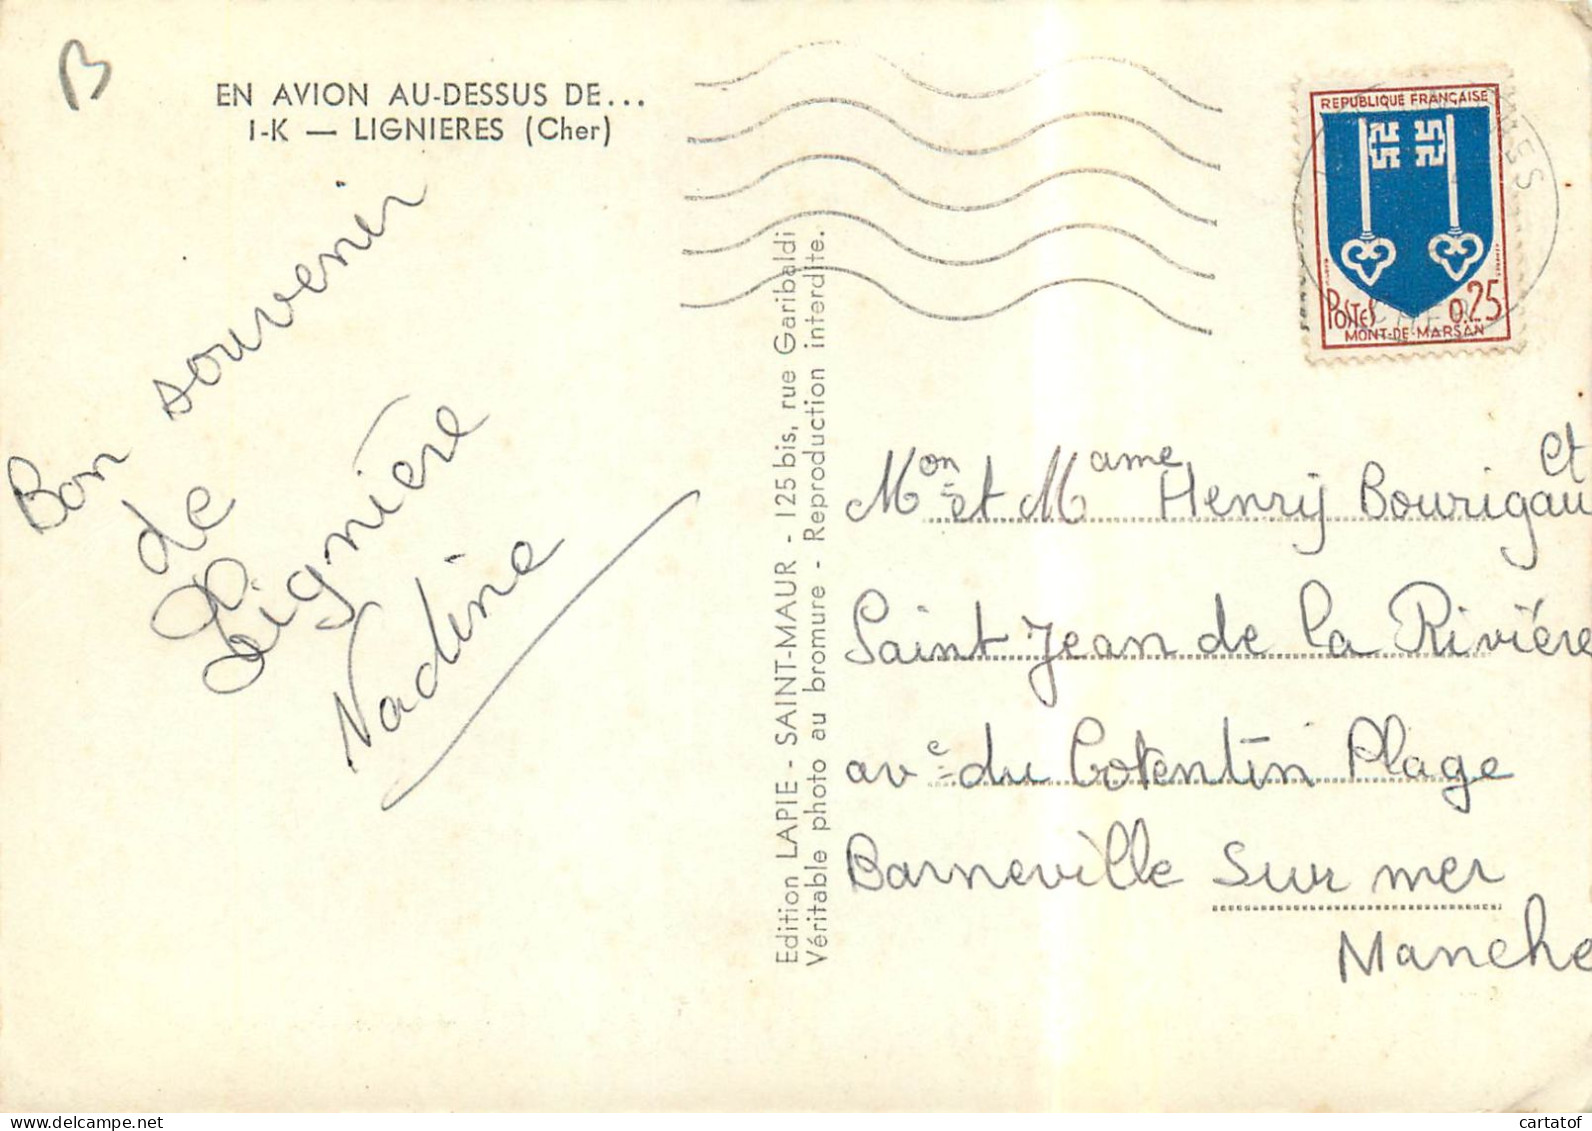 B
EN AVION AU-DESSUS DE...
I-K — LIGNIERES (Cher)
Bon souvenir
de
Lignière
Nadine
Edition LAPIE - SAINT-MAUR - 125 bis, rue Garibaldi
Véritable photo au bromure - Reproduction interdite.
REPUBLIQUE FRANÇAISE
POSTES 0,25
MONT-DE-MARSAN
CHER
Mon et Mame Henrij Bourigau et
Saint Jean de la Rivière
ave du Cotentin Plage
Barneville sur mer
Manche
www.delcampe.net
cartatof